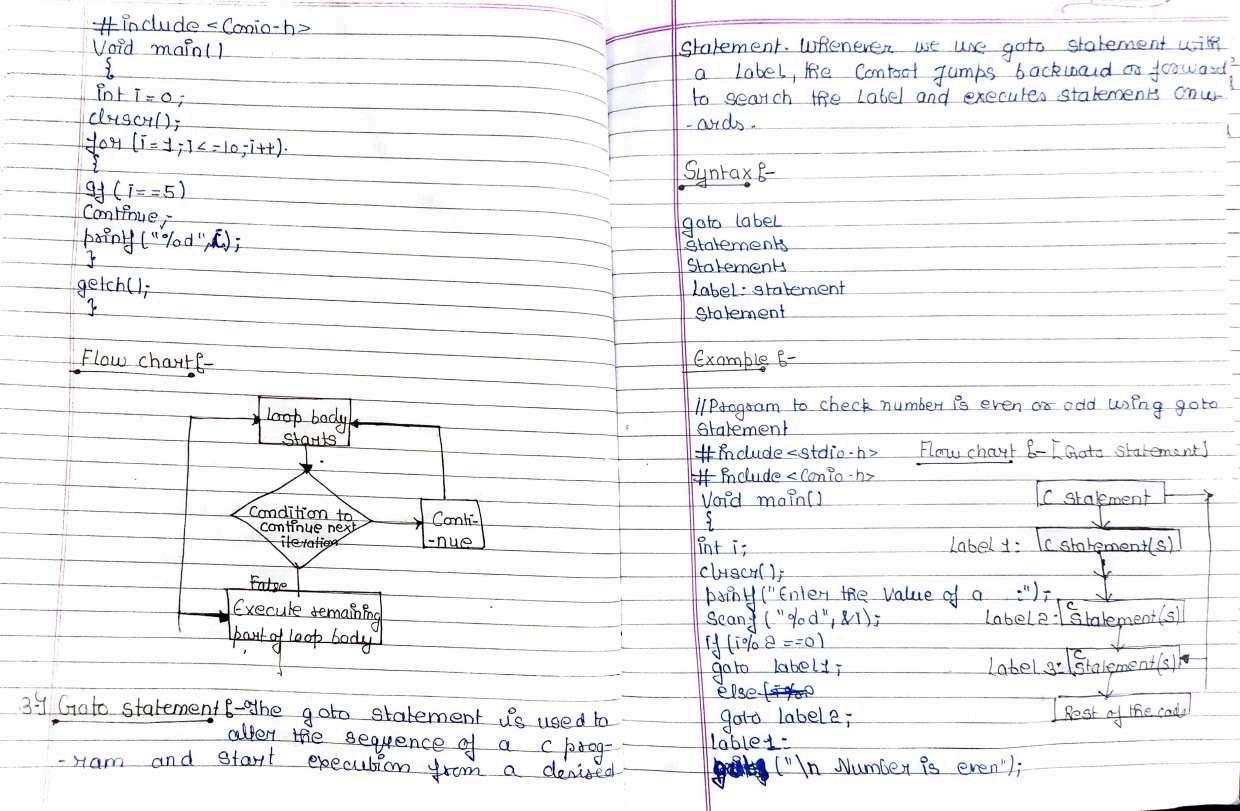 #include <Conio-h>
Void main()
{
int i=0;
clrscr();
for (i=1; i<=10; i++).
{
if (i==5)
Continue;
printf("%d",i);
}
getch();
}
Flow chart :-
Loop body
Starts
Condition to
continue next
iteration
Conti-
-nue
False
Execute remaining
part of loop body
3-} Goto statement :- The goto statement is used to
alter the sequence of a C prog-
-ram and start execution from a desired
Statement. Whenever we use goto statement with
a Label, the Control Jumps backward or forward
to search the Label and executes statements onw-
-ards.
Syntax :-
goto label
statements
Statements
Label: statement
Statement
Example :-
//Program to check number is even or odd using goto
Statement
#include<stdio-h>
# include <Conio-h>
Void main()
{
int i;
clrscr();
printf("Enter the Value of a :");
Scanf ("%d", &I);
If (i%2==0)
goto label1;
else
goto label2;
lable1:
("\n Number is even");
Flow chart :- [Goto statement]
C statement
Label 1: C statement(s)
Label 2: C Statement(s)
Label 3: C Statement(s)
Rest of the code